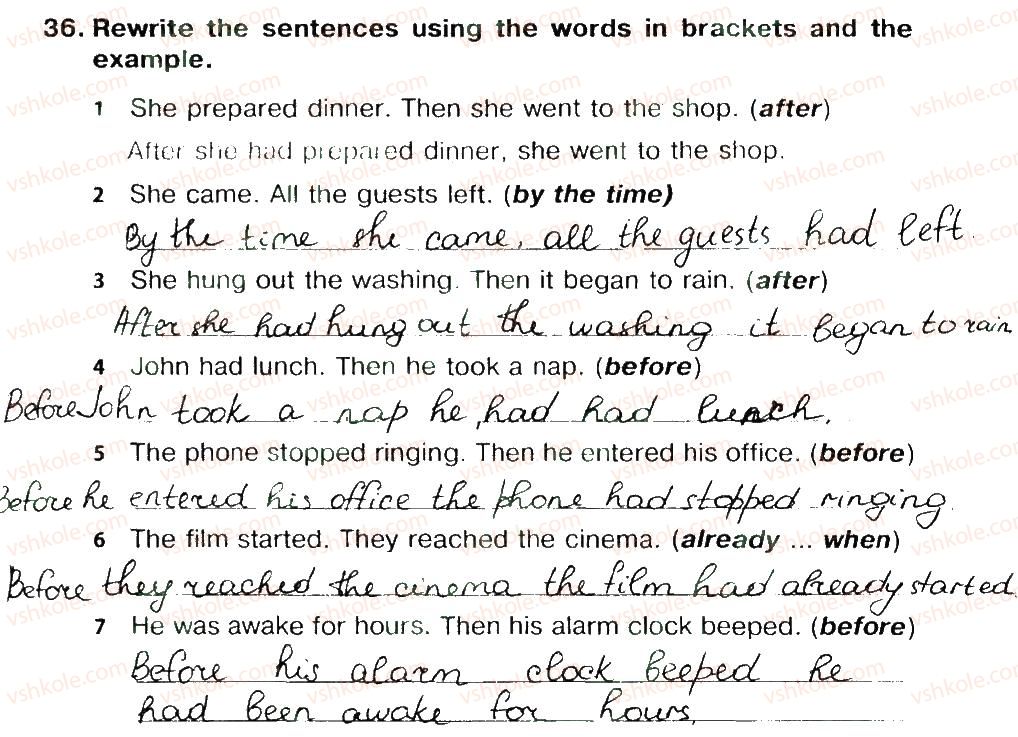 36. Rewrite the sentences using the words in brackets and the
example.
1 She prepared dinner. Then she went to the shop. (after)
After she had prepared dinner, she went to the shop.
2 She came. All the guests left. (by the time)
By the time she came, all the guests had left.
3 She hung out the washing. Then it began to rain. (after)
After she had hung out the washing it began to rain
4 John had lunch. Then he took a nap. (before)
Before John took a nap he, had had lunch.
5 The phone stopped ringing. Then he entered his office. (before)
Before he entered his office the phone had stopped ringing.
6 The film started. They reached the cinema. (already ... when)
Before they reached the cinema the film had already started.
7 He was awake for hours. Then his alarm clock beeped. (before)
Before his alarm clock beeped he
had been awake for hours.
vshkole.com